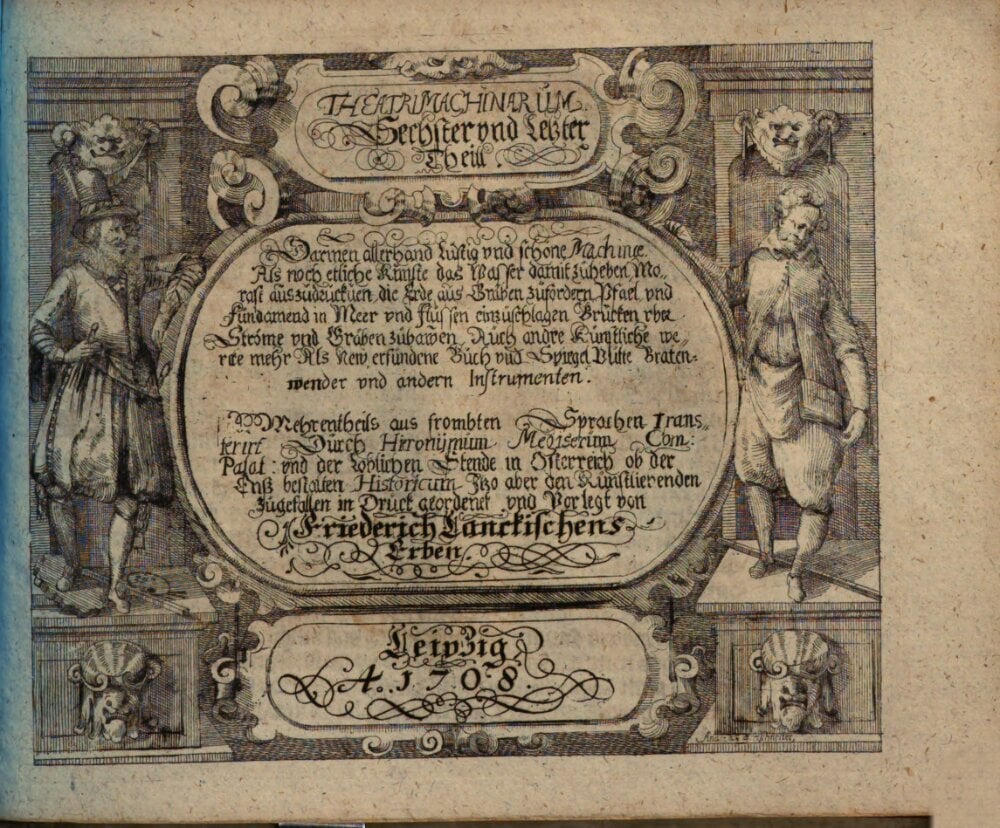 THEATRI MACHINARUM
Sechster vnd Letzter
Theill.
Darinen allerhand Lustig vnd schöne Machinæ
Als noch etliche Künste das Wasser damit zuheben Mo„
rast auszudrucken, die Erde aus Gräben zufördern Pfael vnd
fundamend in Meer vnd flüssen einzuschlagen Brücken vber
Ströme vnd Gräben zubawen, Auch andre Künstliche we„
rcke mehr Als New erfundene Buch vnd Spiegel Braten-
wender vnd andern Instrumenten.
Mehrentheils aus frombten Sprachen Trans„
ferirt Durch Hieronÿmum Megiserum Com:
Palat: vnd der Löblichen Stende in Osterreich ob der
Enß bestalten Historicum Itzo aber den Kunstlierenden
zugefallen in Druck geordenet vnd Vorlegt von
Friederich Lanckischens
Erben.
Leipzig
A. 1708.